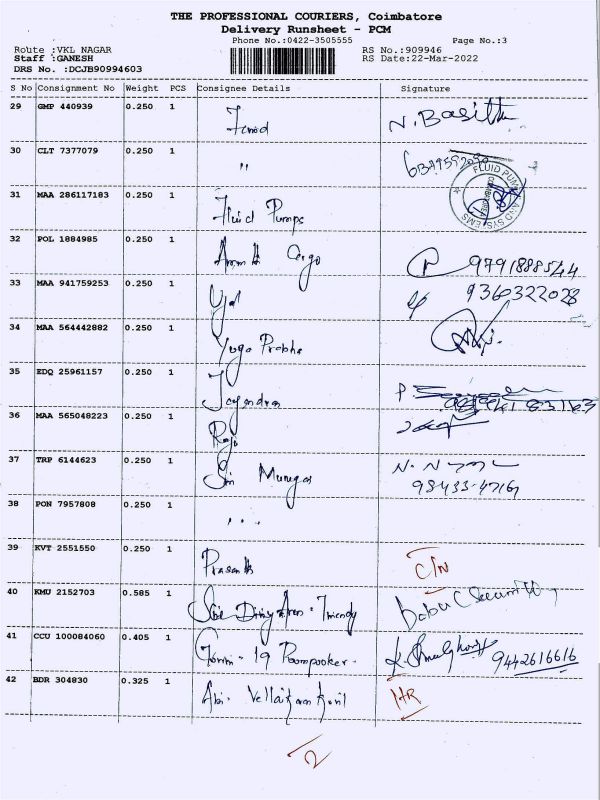 THE PROFESSIONAL COURIERS, Coimbatore
Delivery Runsheet - PCM
Phone No.:0422-3505555 Page No.:3
Route :VKL NAGAR RS No.:909946
Staff :GANESH RS Date:22-Mar-2022
DRS No. :DCJB90994603
S No Consignment No Weight PCS Consignee Details Signature
29 GMP 440939 0.250 1 N. Basith
30 CLT 7377079 0.250 1 "
FLUID PUMPS AND SYSTEMS
31 MAA 286117183 0.250 1 Fluid Pumps
32 POL 1884985 0.250 1 Cargo 9791888544
33 MAA 941759253 0.250 1 9360322028
34 MAA 564442882 0.250 1 Yuga Prabha
35 EDQ 25961157 0.250 1 P.
36 MAA 565048223 0.250 1 Raji
37 TRP 6144623 0.250 1 Sri Murugas N.
98433-47161
38 PON 7957808 0.250 1
39 KVT 2551550 0.250 1 Prasanth C/N
40 KMU 2152703 0.585 1 Babu (Security)
41 CCU 100084060 0.405 1 19 9442616616
42 BDR 304830 0.325 1 Abi. HR
2